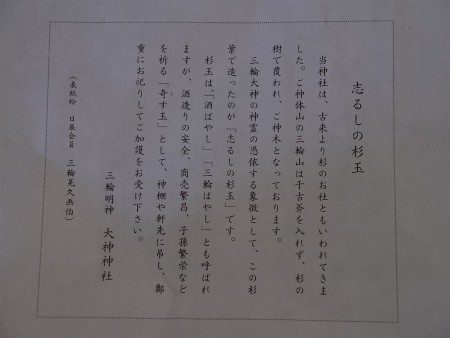 志るしの杉玉
当神社は、古来より杉のお社ともいわれてきま
した。ご神体山の三輪山は千古斧を入れず、杉の
樹で覆われ、ご神木となっております。
三輪大神の神霊の憑依する象徴として、この杉
葉で造ったのが「志るしの杉玉」です。
杉玉は、「酒ばやし」「三輪ばやし」とも呼ばれ
ますが、酒造りの安全、商売繁昌、子孫繁栄など
を祈る「奇す玉」として、神棚や軒先に吊し、鄭
重にお祀りしてご加護をお受け下さい。
三輪明神 大神神社
（表紙絵 日展会員 三輪晁久画伯）